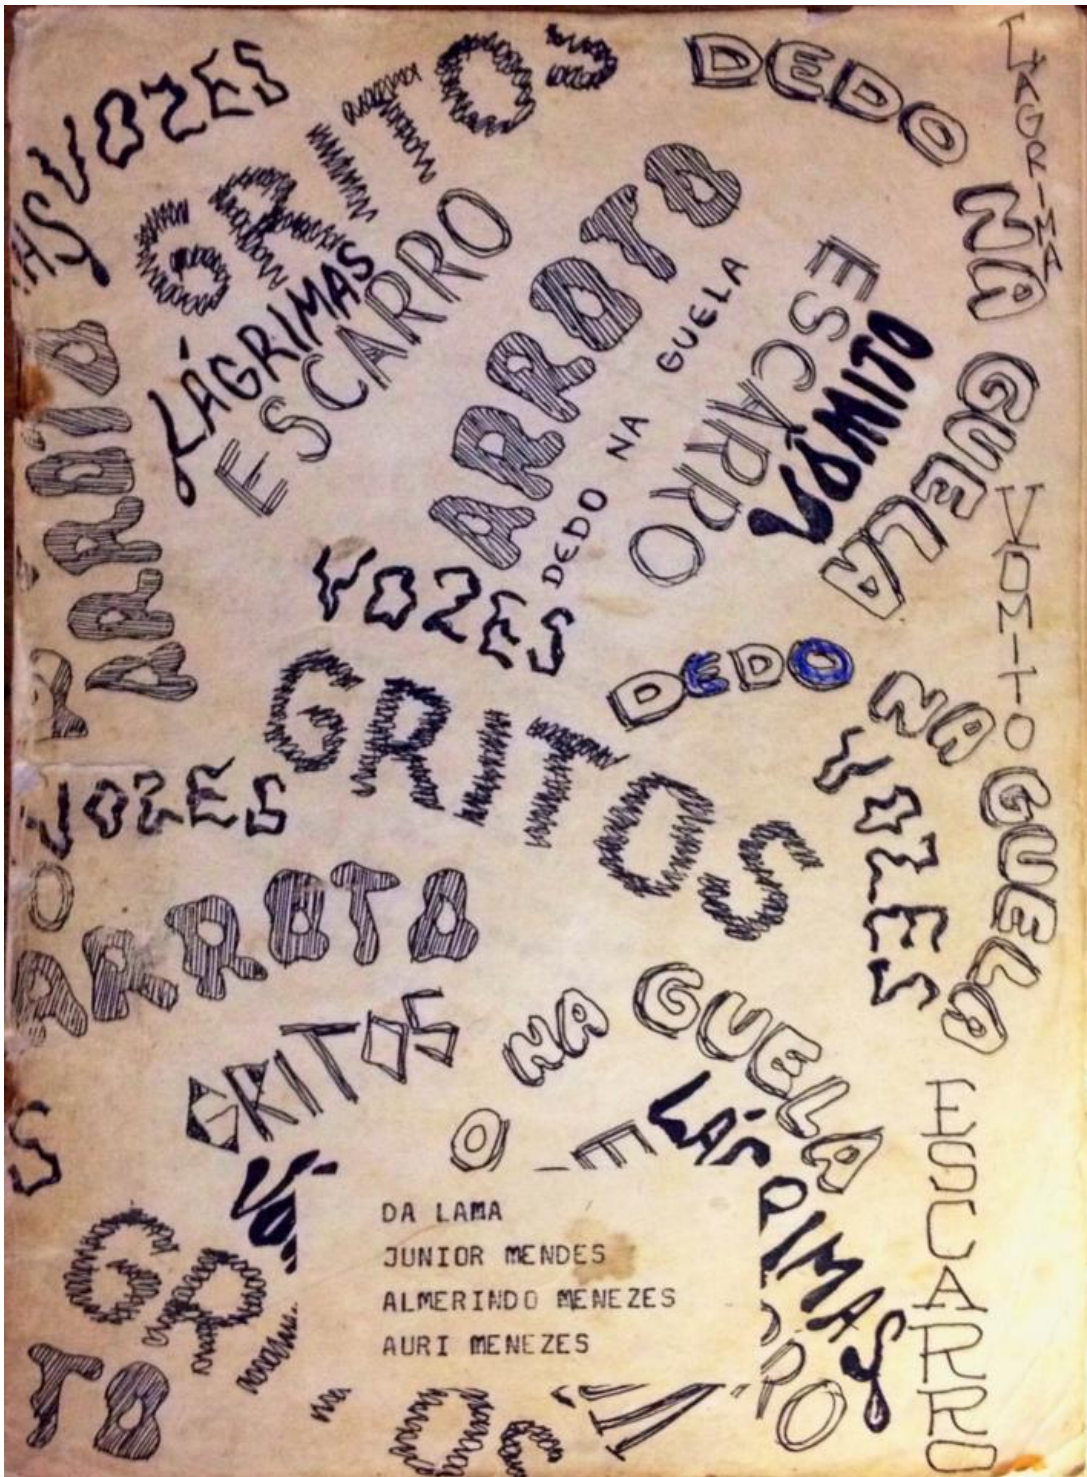 AS VOZES
GRITOS
DEDO NA GUELA
LAGRIMA
LÁGRIMAS
ESCARRO
ARROTO
DEDO NA GUELA
ESCARRO
VÔMITO
VOMITO
ARROTO
VOZES
GRITOS
DEDO NA GUELA
VOZES
VOZES
O
ARROTO
GRITOS
O NA GUELA
LÁGRIMAS
E
ESCARRO
S
VÔ
GR
TO
RO
DA LAMA
JUNIOR MENDES
ALMERINDO MENEZES
AURI MENEZES